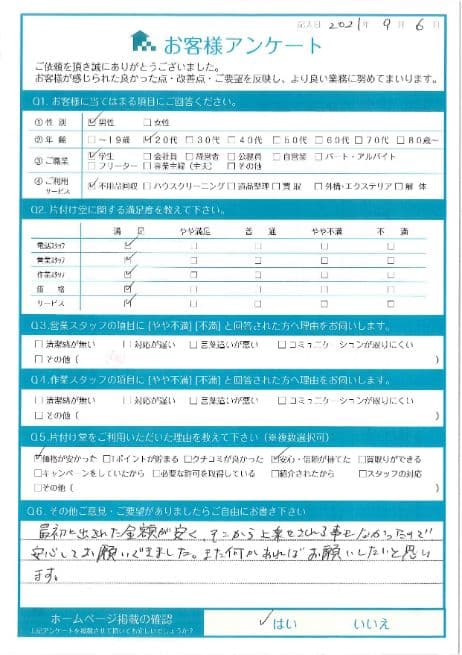 記入日 2021年 9月 6日
お客様アンケート
ご依頼を頂き誠にありがとうございました。
お客様が感じられた良かった点・改善点・ご要望を反映し、より良い業務に努めてまいります。
Q1. お客様に当てはまる項目にご回答ください。
①性 別 ☑男性 □女性
②年 齢 □～19歳 ☑20代 □30代 □40代 □50代 □60代 □70代 □80歳～
③ご職業 ☑学生 □会社員 □経営者 □公務員 □自営業 □パート・アルバイト
□フリーター □専業主婦（主夫） □その他
④ご利用サービス ☑不用品回収 □ハウスクリーニング □遺品整理 □買 取 □外構・エクステリア □解 体
Q2. 片付け堂に関する満足度を教えて下さい。
満 足 やや満足 普 通 やや不満 不 満
電話スタッフ ☑ □ □ □ □
営業スタッフ ☑ □ □ □ □
作業スタッフ ☑ □ □ □ □
価 格 ☑ □ □ □ □
サービス ☑ □ □ □ □
Q3.営業スタッフの項目に[やや不満] [不満] と回答された方へ理由をお伺いします。
□清潔感が無い □対応が遅い □言葉遣いが悪い □コミュニケーションが取りにくい
□その他 ( )
Q4.作業スタッフの項目に[やや不満] [不満] と回答された方へ理由をお伺いします。
□清潔感が無い □対応が遅い □言葉遣いが悪い □コミュニケーションが取りにくい
□その他 ( )
Q5.片付け堂をご利用いただいた理由を教えて下さい（※複数選択可）
☑価格が安かった □Tポイントが貯まる □クチコミが良かった ☑安心・信頼が持てた □買取りができる
□キャンペーンをしていたから □必要な許可を取得している □紹介されたから □スタッフの対応
□その他 ( )
Q6. その他ご意見・ご要望がありましたらご自由にお書き下さい
最初に出された金額が安く、そこから上乗せされる事もなかったので
安心してお願いできました。また何かあればお願いしたいと思い
ます。
ホームページ掲載の確認 ✓はい いいえ
上記アンケートを掲載させて頂いても宜しいでしょうか？